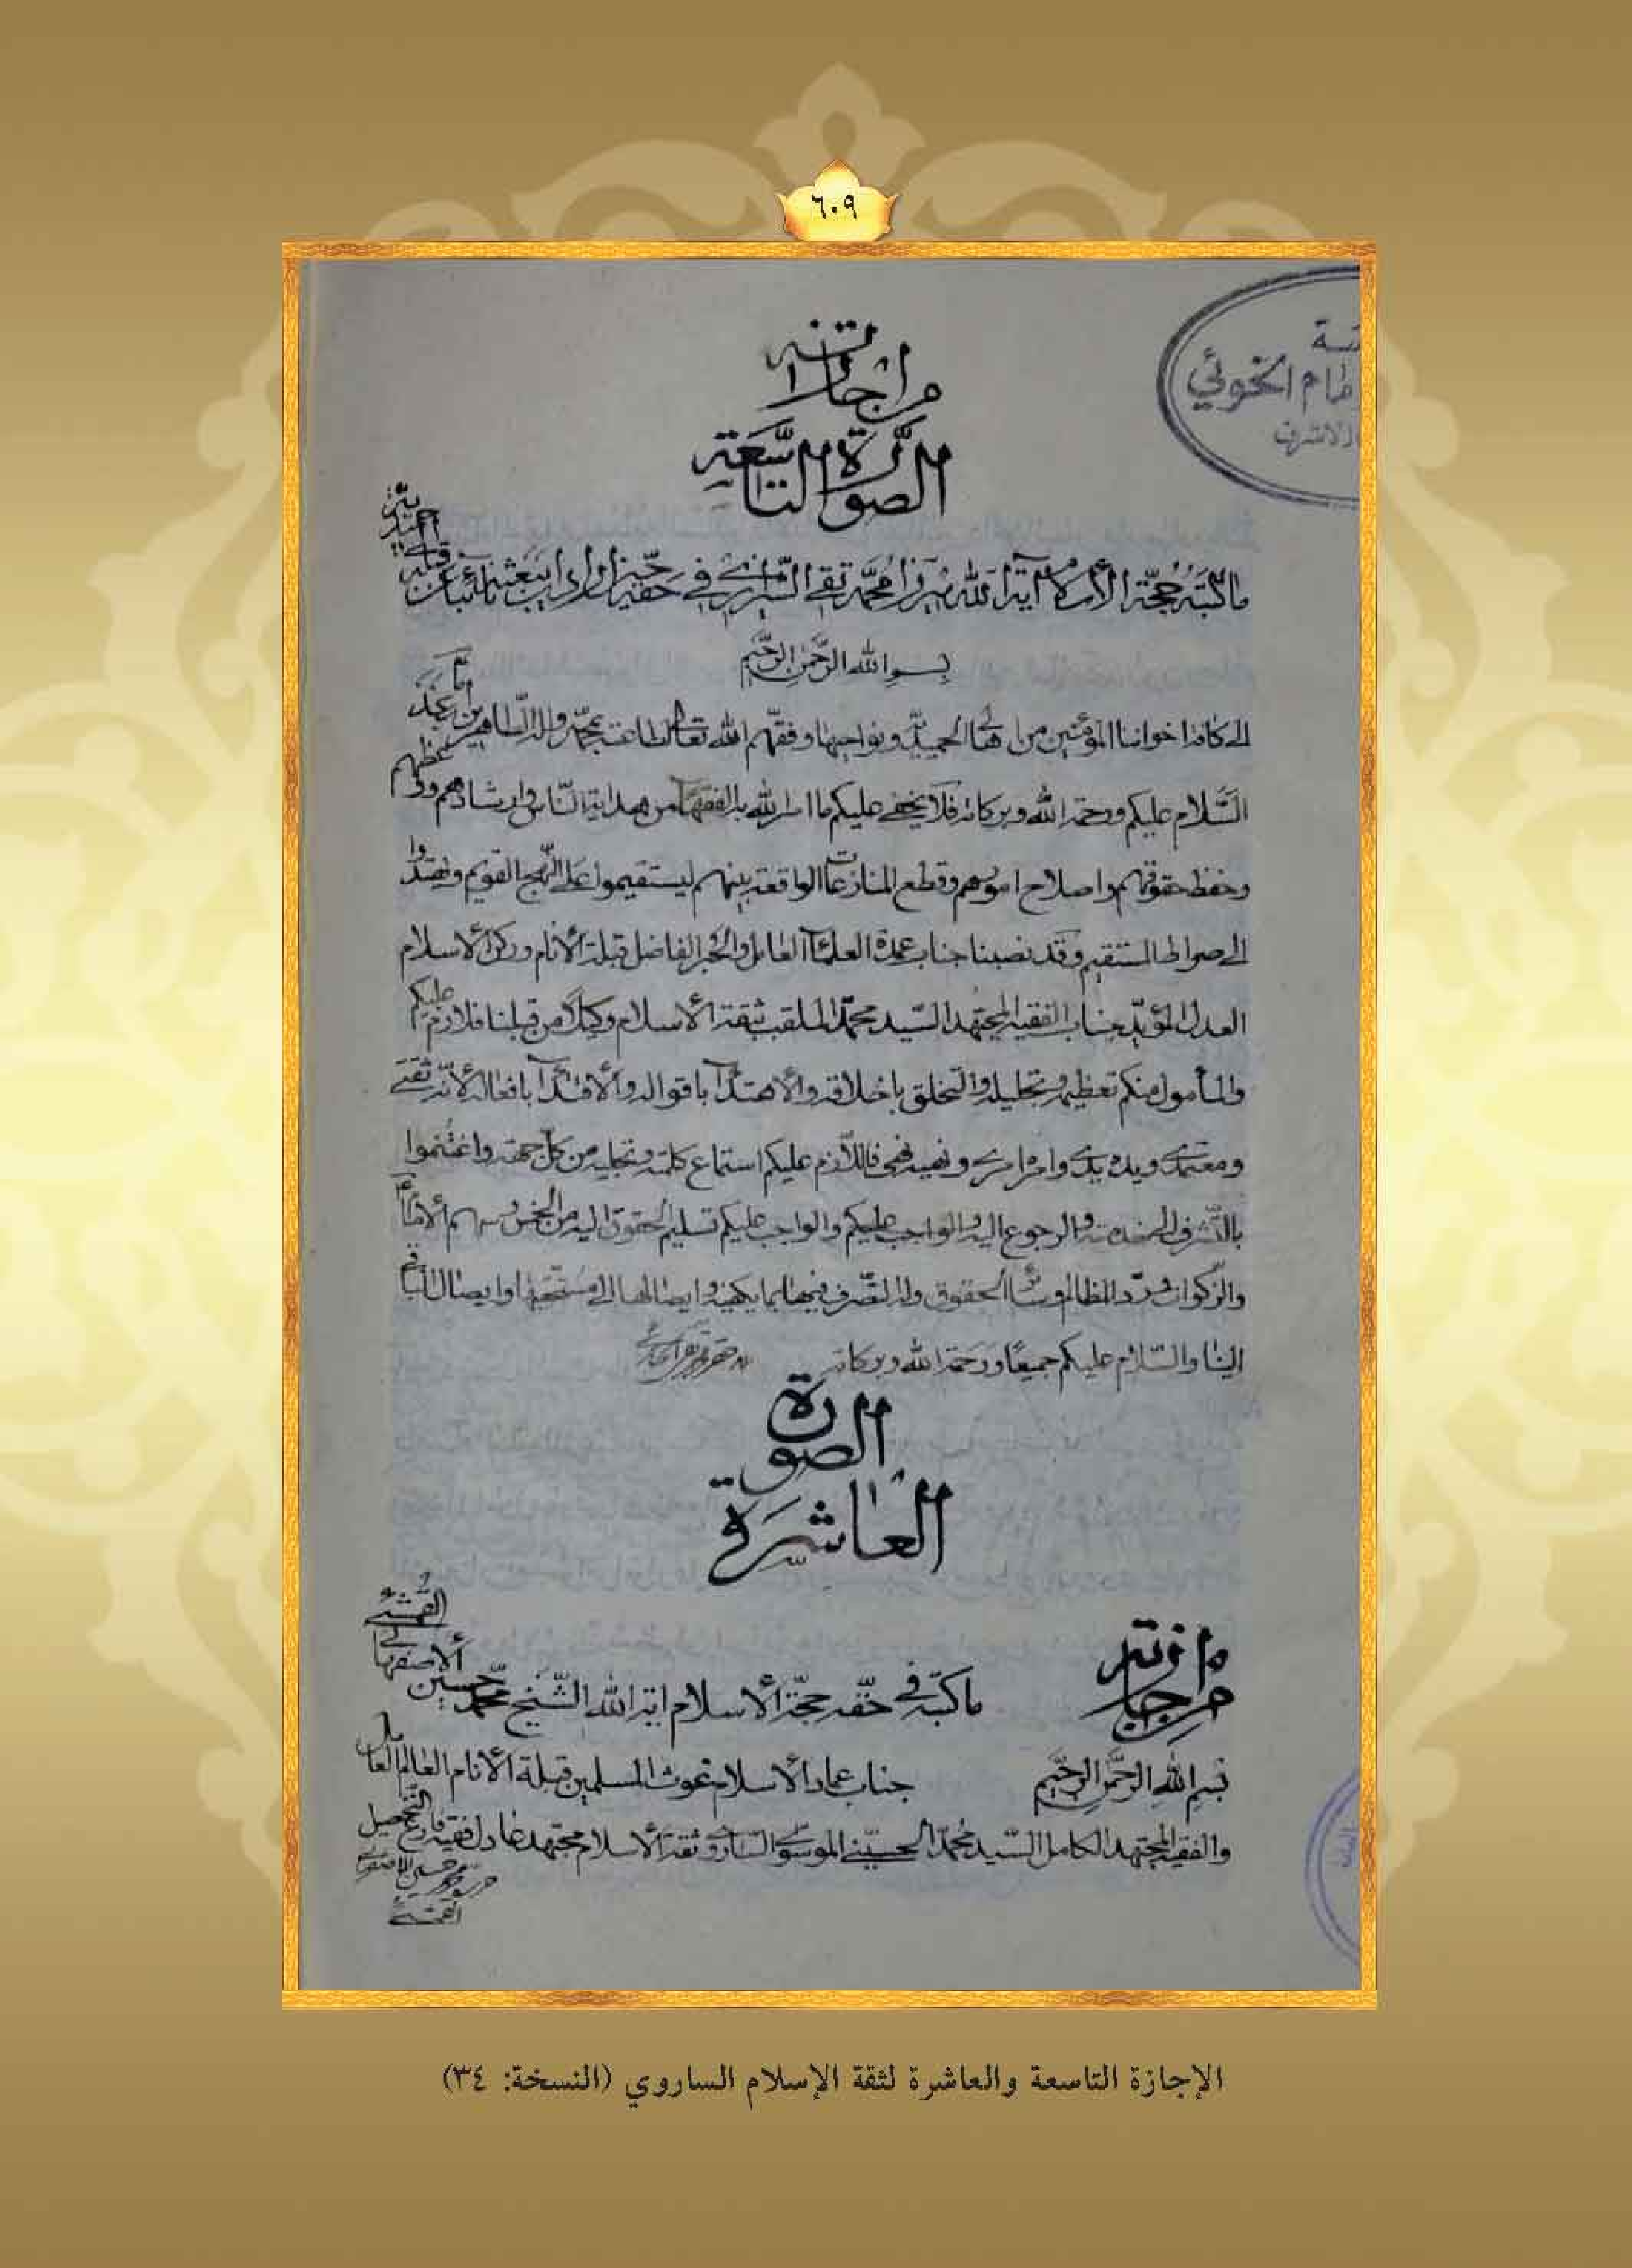 ٦٠٩
من اجازاته
الصورة التاسعة
ما كتبه حجة الاسلام آية الله ميرزا محمد تقي الشيرازي في حقه حين اراد ان يبعثه نائبا عن قبله
بسم الله الرحمن الرحيم
الى كافة اخواننا المؤمنين من اهالي الحميدية ونواحيها وفقهم الله تعالى لطاعته بمحمد واله الطاهرين
السلام عليكم ورحمة الله وبركاته فلا يخفى عليكم ما امر الله به الفقهاء من هداية الناس وارشادهم ووعظهم
وحفظ حقوقهم واصلاح امورهم وقطع المنازعات الواقعة بينهم ليستقيموا على النهج القويم ويهتدوا
الى صراط المستقيم وقد نصبنا جناب عمدة العلماء العامل والحبر الفاضل قبلة الانام وركن الاسلام
العدل المؤيد جناب الفقيه المجتهد السيد محمد الملقب بثقة الاسلام وكيلا من قبلنا فلازم عليكم
والمأمول منكم تعظيمه وتجليله والتخلق باخلاقه والاهتداء باقواله والاقتداء بافعاله لانه ثقتي
ومعتمدي ويده يدي وامره امري ونهيه نهيي فاللازم عليكم استماع كلمته وتجليه من كل جهة واغتنموا
بالتشرف الى خدمته والرجوع اليه والواجب عليكم والواجب عليكم تسليم الحقوق اليه من الخمس وسهم الامام
والزكوات ورد المظالم وسائر الحقوق وله التصرف فيها بما يكفيه وايصالها الى مستحقها وايصال الباقي
الينا والسلام عليكم جميعا ورحمة الله وبركاته
الصورة
العاشرة
من اجازته
ما كتبه في حقه حجة الاسلام اية الله الشيخ محمد حسين الاصفهاني القمشئي
بسم الله الرحمن الرحيم جناب عماد الاسلام غوث المسلمين قبلة الانام العالم العامل
والفقيه المجتهد الكامل السيد محمد الحسيني الموسوي الساروي ثقة الاسلام مجتهد عادل فقيه فارغ التحصيل
الإجازة التاسعة والعاشرة لثقة الإسلام الساروي (النسخة: ٣٤)